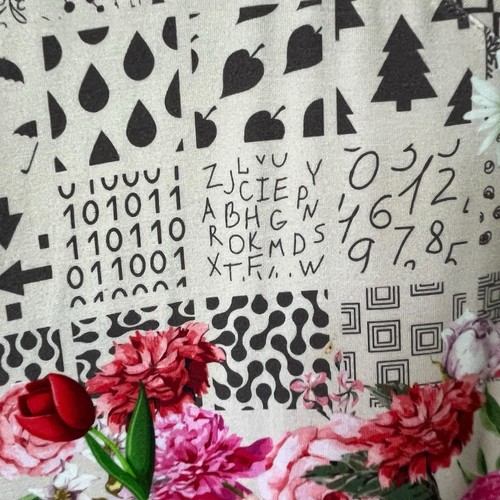 101011
110110
011001
Z J L V U
C I E P Y
A B H G N
R O K M D S
X T, F, , . W
0 3
1 2
1 6
9 7, 8